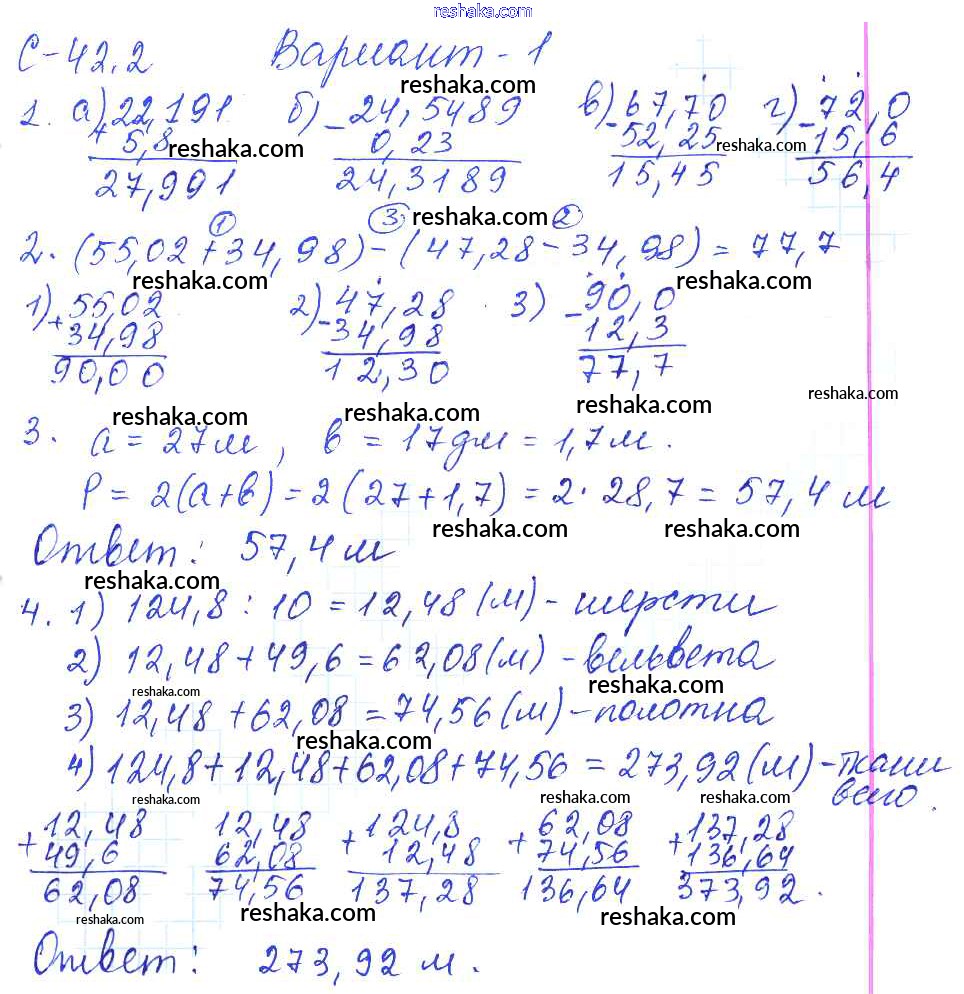 reshaka.com
С-42.2 Вариант - 1
reshaka.com
1. а) 22,191 б) 24,5489 в) 67,70 г) 72,0
+ 5,8 - 0,23 - 52,25 - 15,6
reshaka.com reshaka.com reshaka.com
27,991 24,3189 15,45 56,4
1 3 reshaka.com 2
2. (55,02 + 34,98) - (47,28 - 34,98) = 77,7
reshaka.com reshaka.com reshaka.com
1) 55,02 2) 47,28 3) 90,0
+ 34,98 - 34,98 - 12,3
90,00 12,30 77,7
reshaka.com reshaka.com reshaka.com reshaka.com
3. a = 27 м, в = 17 дм = 1,7 м.
P = 2(a+в) = 2(27+1,7) = 2·28,7 = 57,4 м
reshaka.com reshaka.com
Ответ: 57,4 м
reshaka.com
4. 1) 124,8 : 10 = 12,48 (м) - шерсти
2) 12,48 + 49,6 = 62,08 (м) - вельвета
reshaka.com reshaka.com
3) 12,48 + 62,08 = 74,56 (м) - полотна
reshaka.com
4) 124,8 + 12,48 + 62,08 + 74,56 = 273,92 (м) - ткани
всего.
reshaka.com reshaka.com reshaka.com
+ 12,48 12,48 + 124,8 + 62,08 + 137,28
49,6 62,08 12,48 74,56 136,64
62,08 74,56 137,28 136,64 373,92.
reshaka.com reshaka.com reshaka.com
Ответ: 273,92 м.